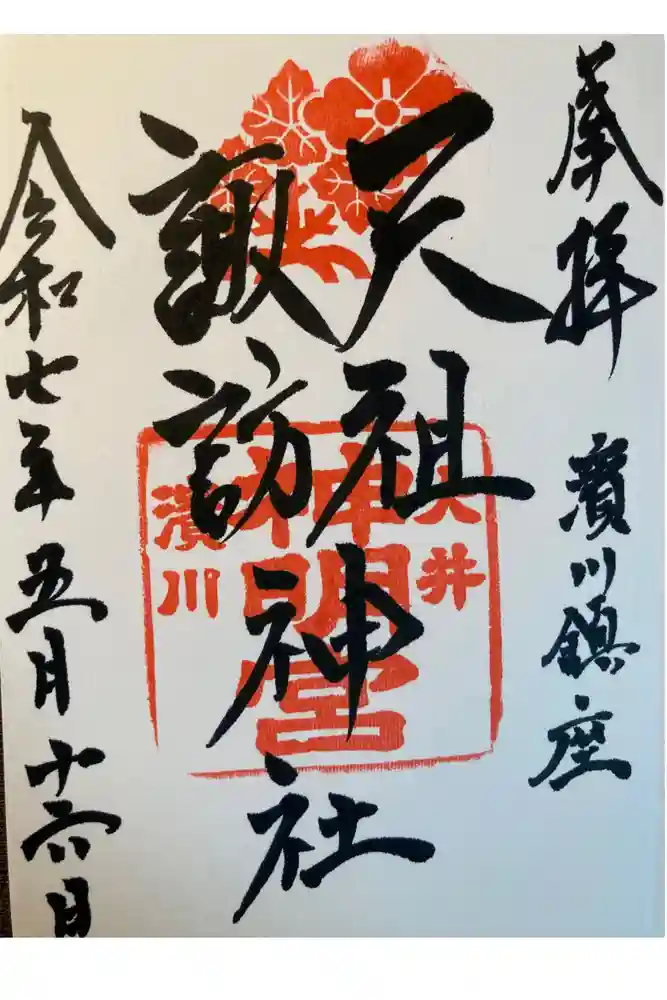 奉拝 濱川鎮座
天祖
諏訪
神社
大井
神明宮
濱川
令和七年五月十六日